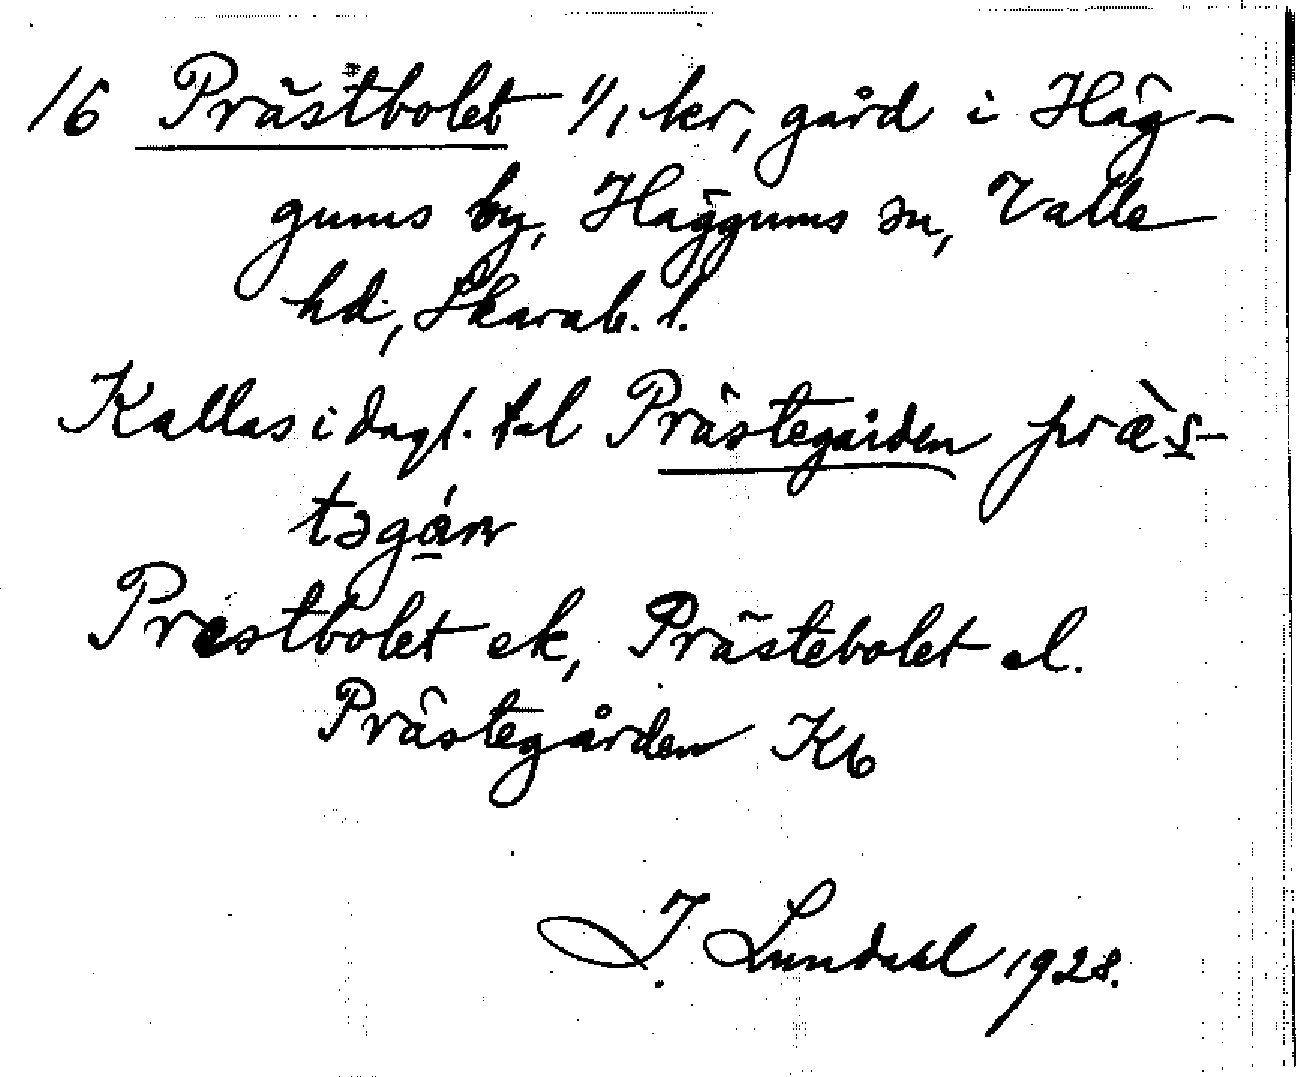 16 Prästbolet 1/1 kr, gård i Häg-
gums by, Häggums sn, Valle
hd, Skarab. l.
Kallas i dagl. tal Prästegården præ̀s-
təgáɳ
Prästbolet ek, Prästebolet el.
Prästegården Kb
I. Lundahl 1928.